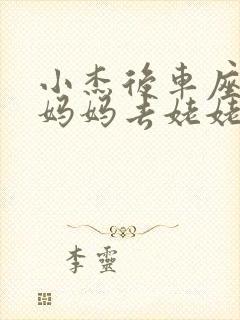 小杰後車座
妈妈去姥姥
李靈